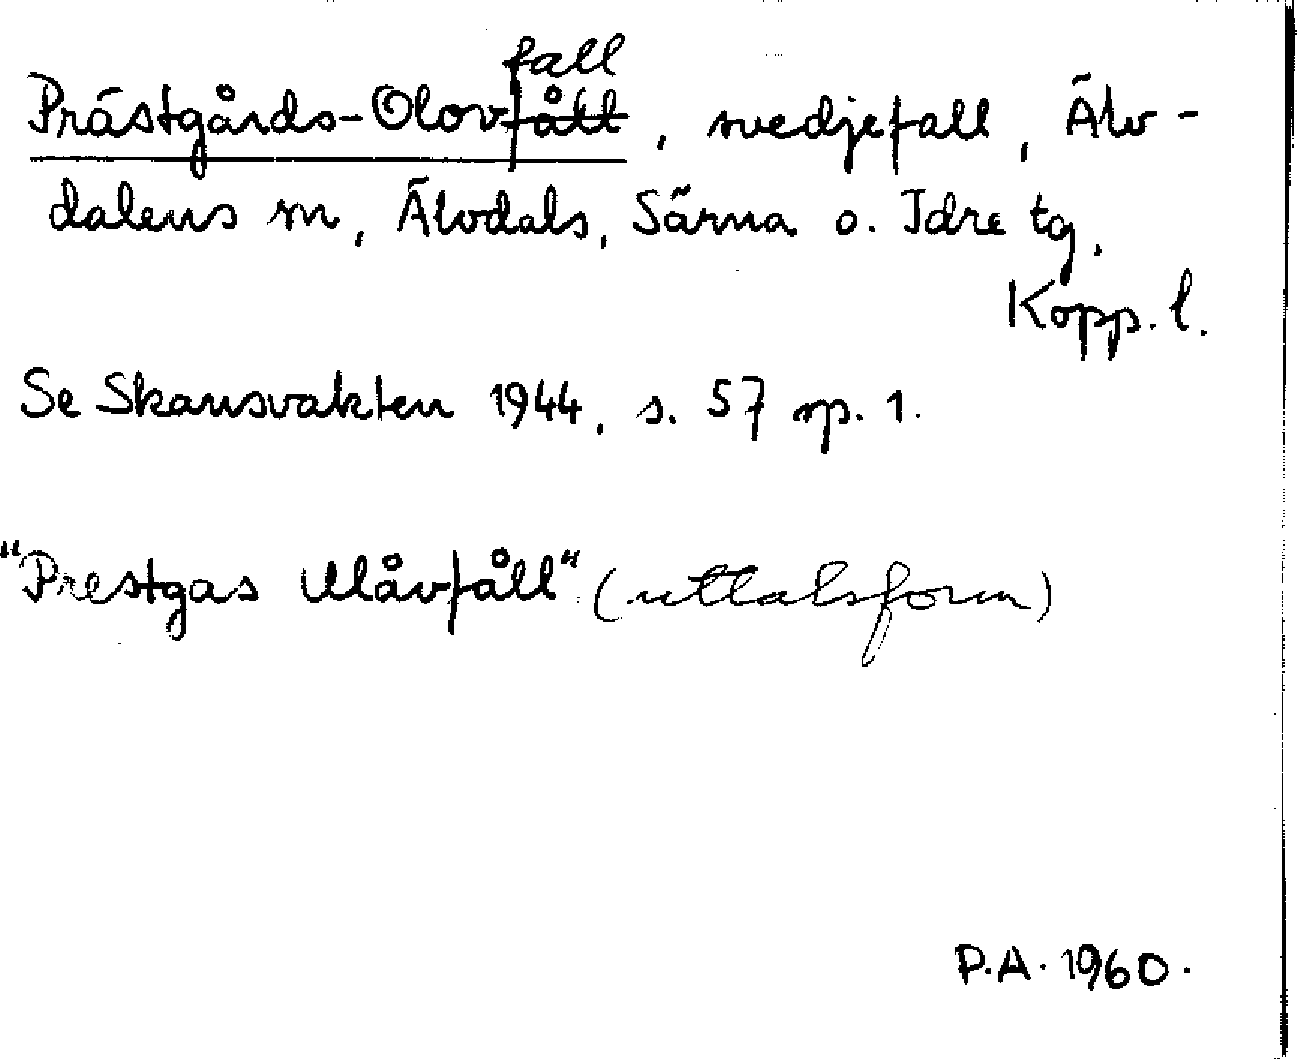 fall
Prästgårds-Olovfåll, svedjefall, Älv-
dalens sn, Älvdals, Särna o. Idre tg,
Kopp. l.
Se Skansvakten 1944, s. 57 sp. 1.
"Prestgas Ulåvfåll" (uttalsform)
P.A. 1960.